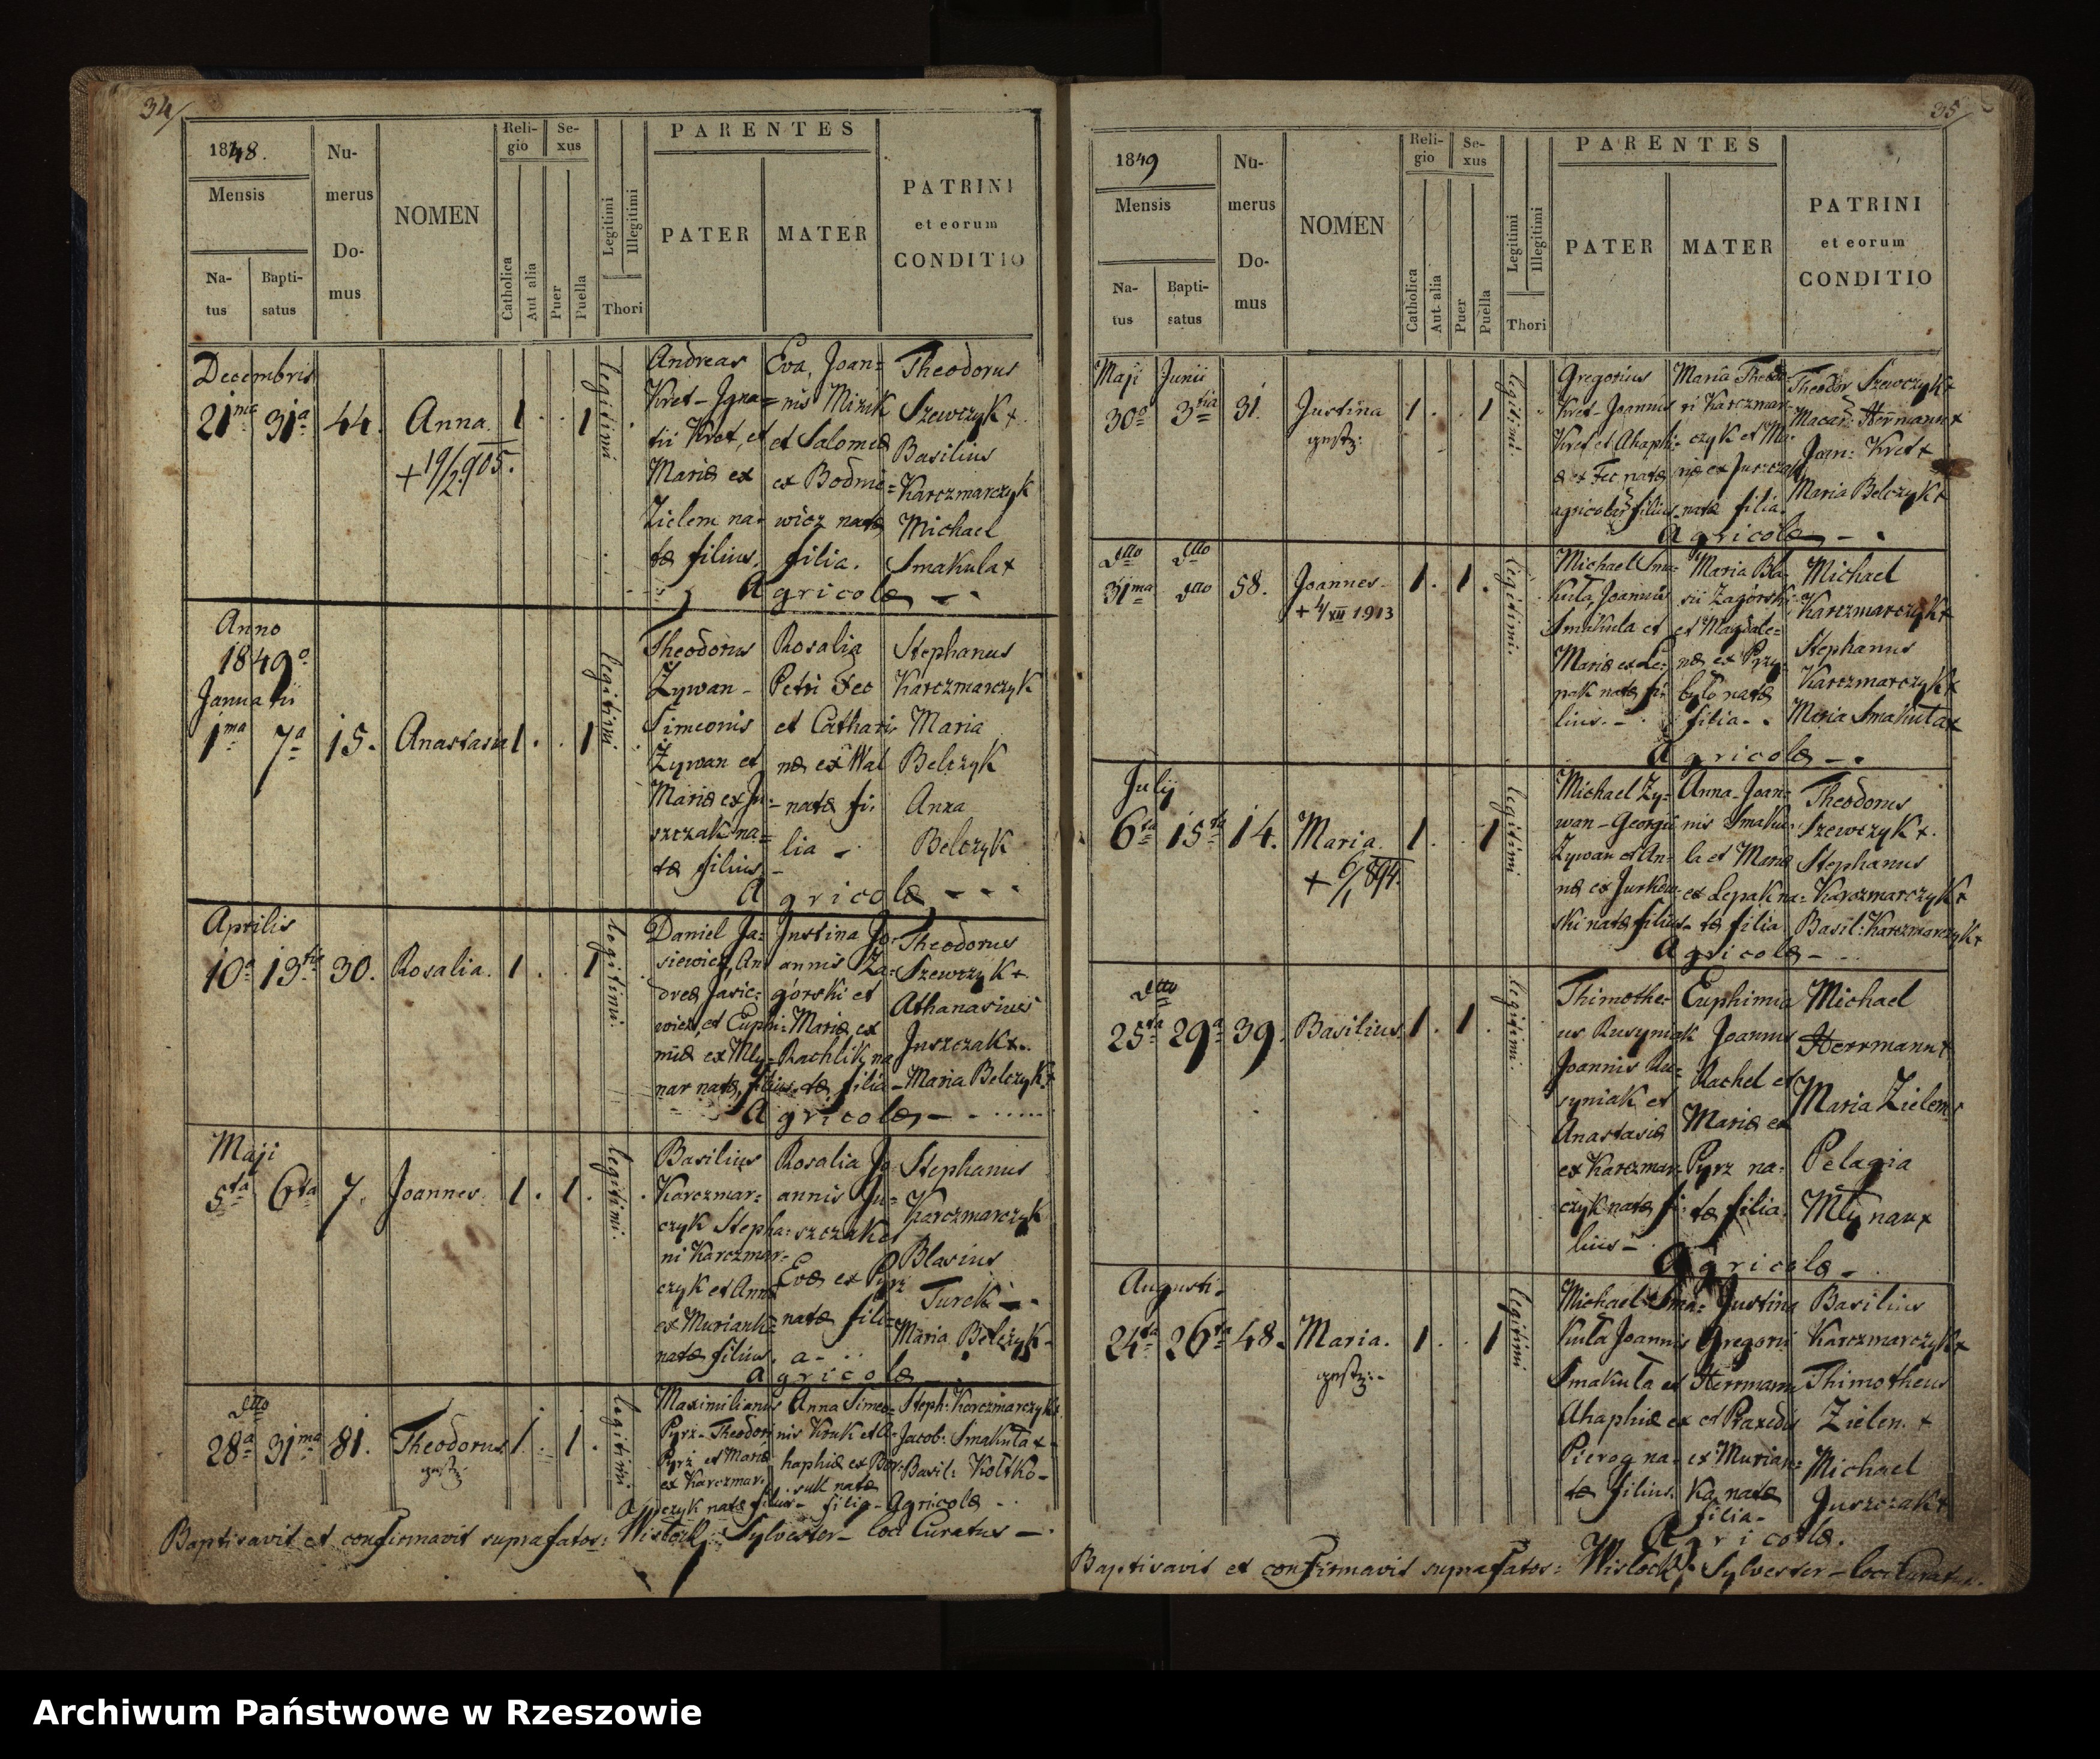 34/
1848.
Mensis
Na-
tus
Bapti-
satus
Nu-
merus
Do-
mus
NOMEN
Reli-
gio
Catholica
Aut alia
Se-
xus
Puer
Puella
Legitimi
Illegitimi
Thori
PARENTES
PATER
MATER
PATRINI
et eorum
CONDITIO
Decembris
21ma 31a 44. Anna. 1 . . 1 legitimi
+ 19/2.905.
Andreas
Kret - Igna=
tii Kret, et
Mariæ ex
Zielem na-
tæ filius.
Eva, Joan=
nis Mizik
et Salomeæ
ex Bodnie=
wicz natæ
filia.
Theodorus
Szewczyk +
Basilius
Karczmarczyk
Michael
Smakula +
Agricolæ - -
Anno
1849o
Januarii
1ma 7a 15. Anastasia 1 . . 1 legitimi
Theodorus
Zywan -
Simeonis
Zywan et
Mariæ ex Ju=
szczak na=
tæ filius -
Rosalia
Petri Fec
et Cathari-
næ ex Wal
natæ fi-
lia -
Stephanus
Karczmarczyk
Maria
Belczyk
Anna
Belczyk
Agricolæ - - -
Aprilis
10a 13tia 30. Rosalia. 1 . . 1 legitimi.
Daniel Ja=
siewicz, An
dreæ Jasie=
wicz, et Euphi=
miæ ex Mły-
nar natæ, filius
Justina Jo-
annis Za=
górski et
Mariæ ex
Rachlik na
tæ filia -
Theodorus
Szewczyk +
Athanasius
Juszczak +.
Maria Belczyk +
Agricolæ -
Maji
5ta 6ta 7. Joannes. 1 . 1 . legitimi.
Basilius
Karczmar=
czyk Stepha=
ni Karczmar-
czyk et Annæ
ex Muriank=
natæ filius.
Rosalia Jo
annis Ju=
szczak et
Evæ ex Pyrz
natæ fili=
a -
Stephanus
Karczmarczyk
Blasius
Turek -
Maria Belczyk -
Agricolæ
dtto
28a 31ma 81. Theodorus 1 . 1 . legitimi.
Maximilianus
Pyrz - Theodori
Pyrz et Mariæ
ex Karczmar-
czyk natæ filius -
Anna Simeo=
nis Kruk et A-
haphiæ ex Bor-
suk natæ
filia -
Steph: Karczmarczyk +
Jacob: Smakuła +
Basil: Kołtko -
Agricolæ -
Baptisavit et confirmavit suprafatos: Wisłocki Sylvester - loci Curatus -.
35/
1849
Mensis
Na-
tus
Bapti-
satus
Nu-
merus
Do-
mus
NOMEN
Reli-
gio
Catholica
Aut alia
Se-
xus
Puer
Puella
Legitimi
Illegitimi
Thori
PARENTES
PATER
MATER
PATRINI
et eorum
CONDITIO
Maji Junii
30a 3tia 31. Justina 1 . . 1 legitimi
Gregorius
Kret - Joannis
Kret et Ahaphi=
æ ex Fec natæ
agricolar filius
Maria Theodo-
ri Karczmar-
czyk et Ma-
riæ ex Juszczak
natæ filia.
Theodor Szewczyk +
Macar: Herrmann +
Joan: Kret +
Maria Belczyk +
Agricolæ - .
dtto dtto
31ma dtto 58. Joannes - 1 . 1 . legitimi.
+ 4/XII 1913
Michael Sma=
kuła, Joannis
Smakula et
Mariæ ex Le-
pak natæ fi-
lius. -
Maria Bla-
sii Zagorski
et Magdale=
næ ex Przy-
było natæ
filia - .
Michael
Karczmarczyk +
Stephanus
Karczmarczyk +
Maria Smakuła +
Agricolæ - .
Julij
6ta 15ta 14. Maria. 1 . . 1 legitimi
+ 6/1 894.
Michael Zy=
wan - Georgii
Zywan et An=
næ ex Jurkow=
ski natæ filius -
Anna - Joan=
nis Smaku=
la et Mariæ
ex Lepak na=
tæ filia
Theodorus
Szewczyk +.
Stephanus
Karczmarczyk +
Basil: Karczmarczyk +
Agricolæ -
dtto
25ta 29a 39. Basilius. 1 . 1 . legitimi.
Thimothe-
us Rusyniak
Joannis Ru=
syniak et
Anastasiæ
ex Karczmar-
czyk natæ fi
lius -
Euphimia
Joannis
Rachel et
Mariæ ex
Pyrz na=
tæ filia
Michael
Herrmann +
Maria Zielem
Pelagia
Młynar +
Agricolæ -
Augusti.
24ta 26ta 48. Maria. 1 . . 1 legitimi
Michael Sma=
kuła Joannis
Smakuła et
Ahaphiæ ex
Pierog na-
tæ filius.
Justina
Gregorii
Herrmann
et Praxedis
ex Murian=
ka natæ
filia -
Basilius
Karczmarczyk +
Thimotheus
Zielem. +
Michael
Juszczak +
Agricolæ.
Baptisavit et confirmavit suprafatos: Wisłocki Sylvester - loci Curatus.
Archiwum Państwowe w Rzeszowie